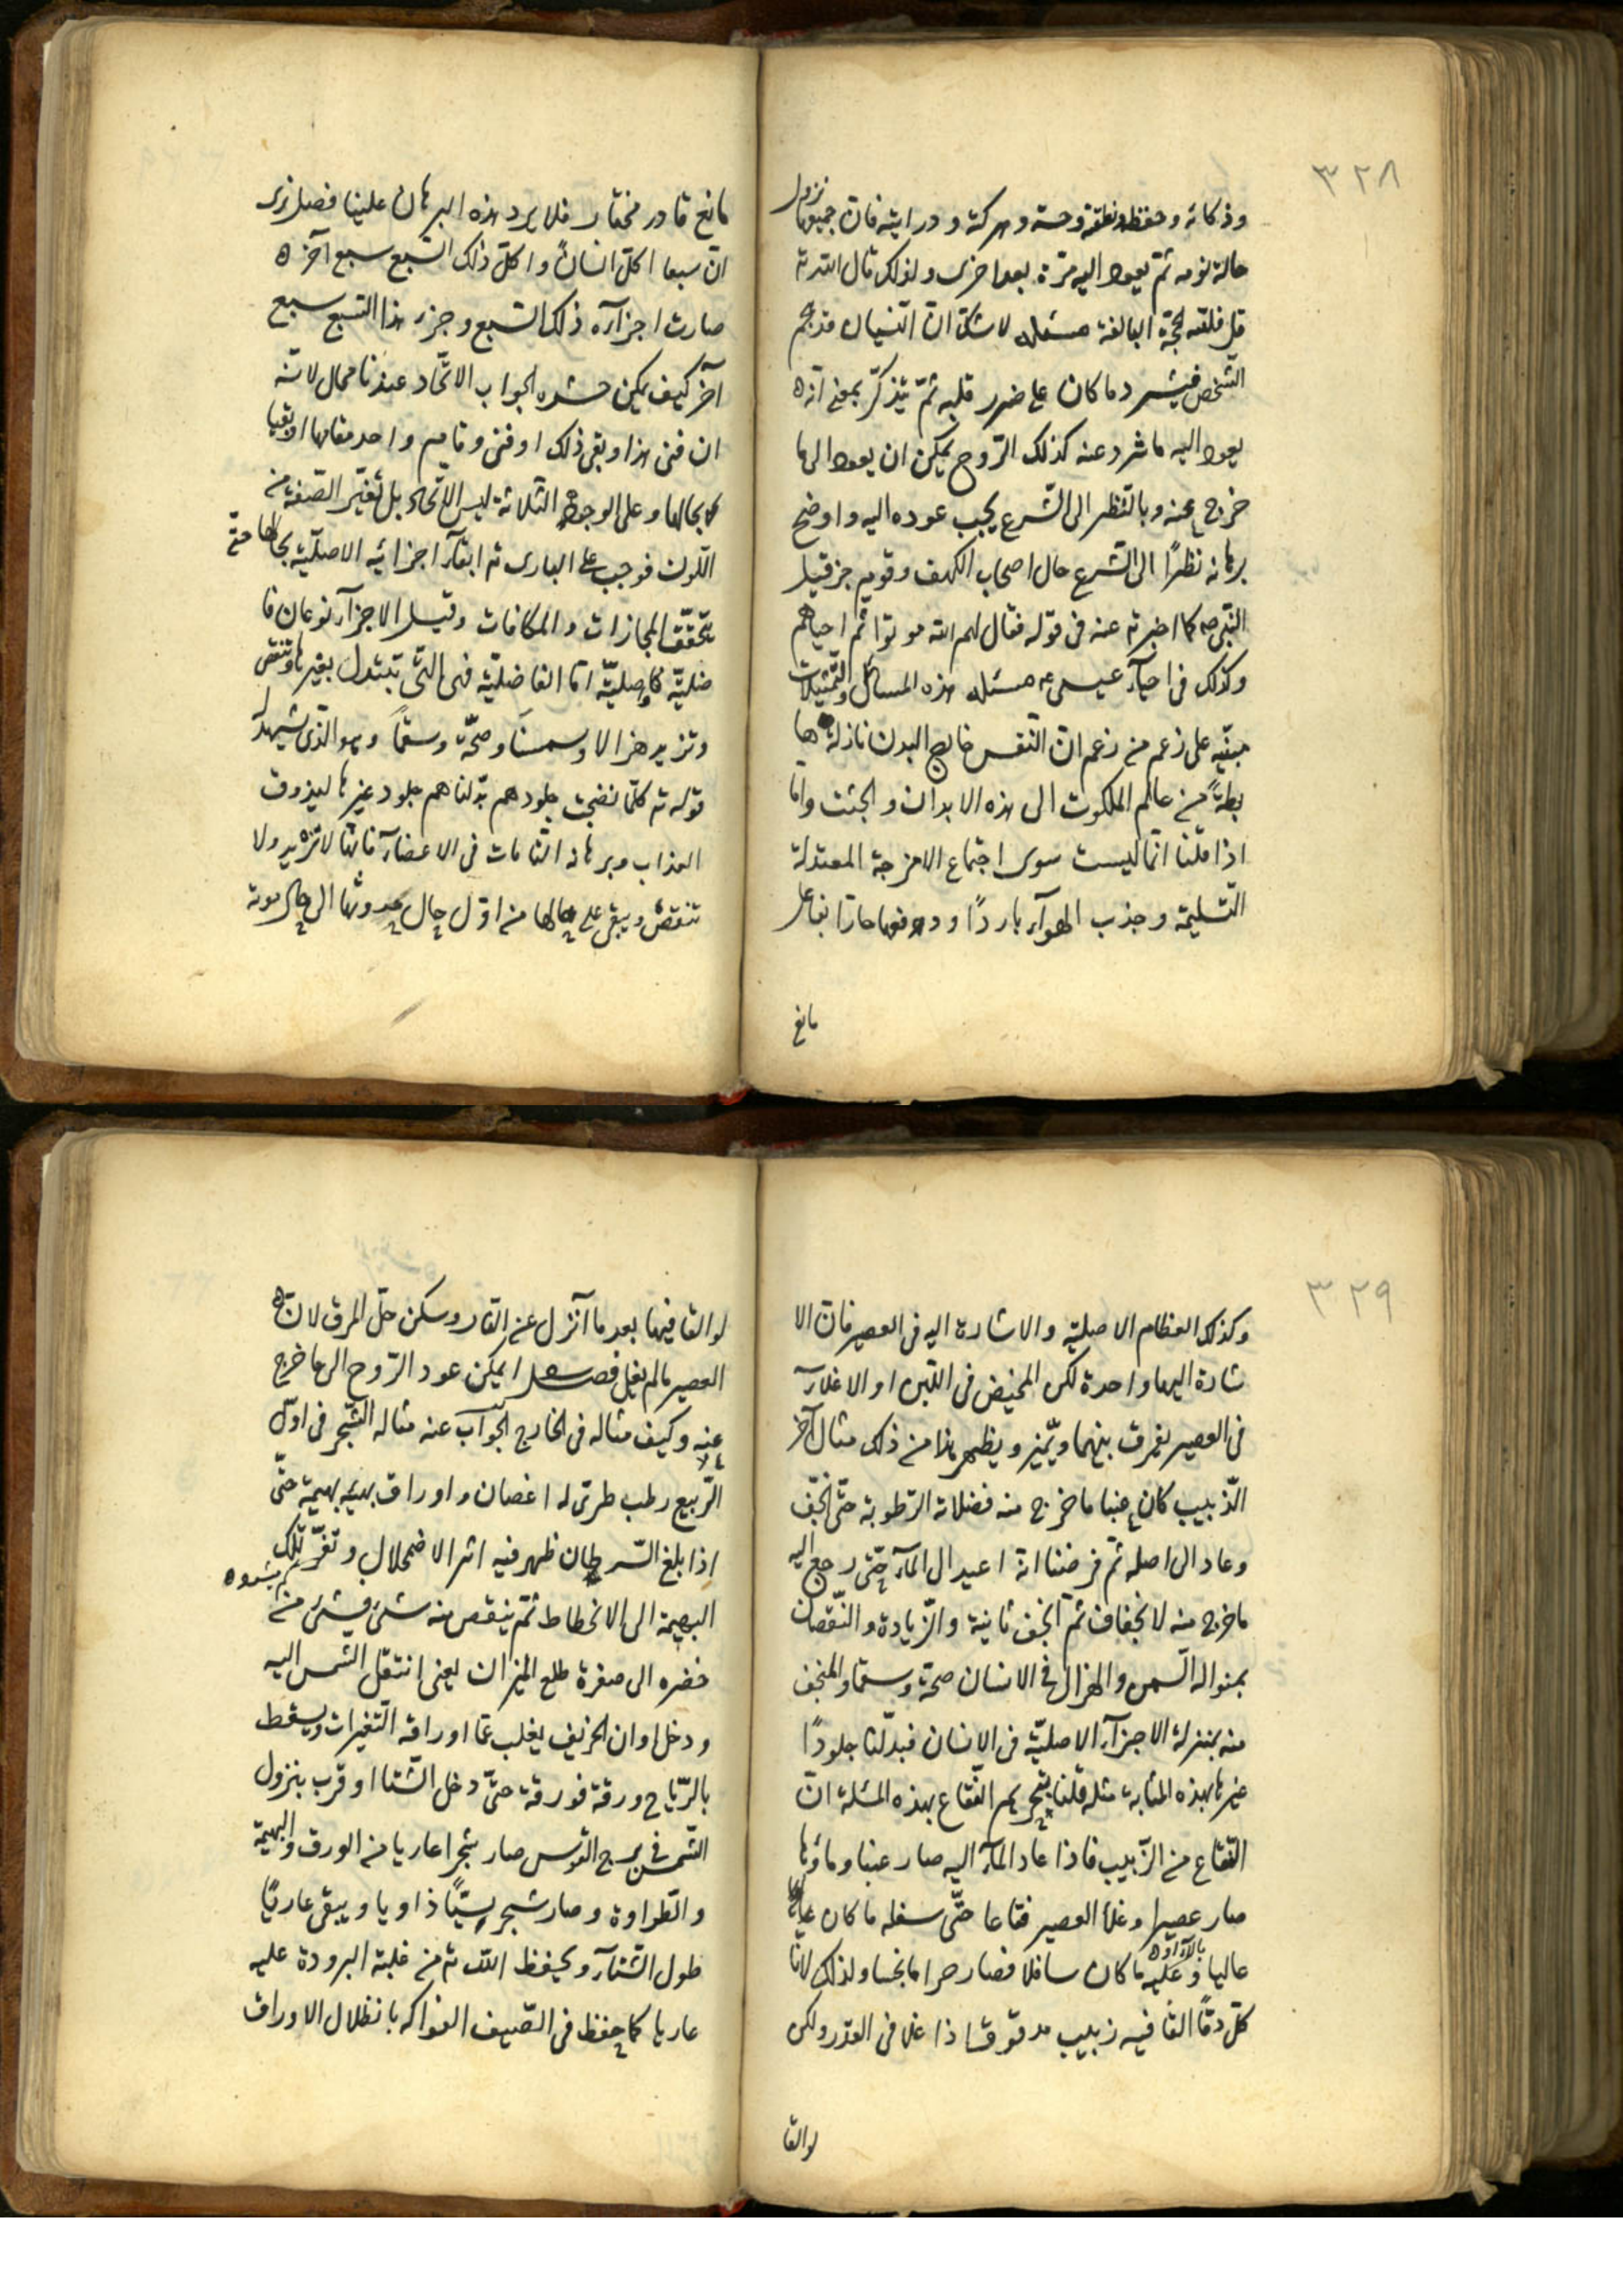 ٣٢٨
وذكائه وحفظه ونطقه وحسه وحركته ودرايته فان جميعها تزول
حالة نومه ثم يعود اليه مرّة بعد اخرى ولذلك قال الله تع
قل فلله الحجّة البالغة مسئله لا شكّ انّ النسيان قد يهجم
الشخص فيشرد ما كان على ضرر قلبه ثمّ يتذكّر بمعنى انّه
يعود اليه ما شرد عنه كذلك الرّوح يمكن ان يعود الى ما
خرج عنه وبالنّظر الى الشّرع يجب عوده اليه واوضح
برهانه نظرًا الى الشرع حال اصحاب الكهف وقوم حزقيل
النّبى ص كما اخبر تع عنه فى قوله فقال لهم الله موتوا ثم احياهم
وكذلك فى احيآء عيسى ع مسئله هذه المسائل والتّمثيلات
مبنيّه على زعم من زعم انّ النفس خارج البدن نازلة ها
بطةً من عالم الملكوت الى هذه الابدان والجثث وامّا
اذا قلنا انّها ليست سوى اجتماع الامزجة المعتدلة
السّليمة وجذب الهوآء باردًا ودفعها حارّا بفاعل
مانع
مانع قادر مختار فلا يرد هذه البرهان علينا فصل نرى
انّ سبعا اكل انسانًا واكل ذلك السّبع سبع آخر ه
صارت اجزآؤه ذلك السّبع وجزء هذا السّبع سبع
آخر كيف يمكن حشره الجواب الاتّحاد عندنا محال لانّه
ان فنى هذا وبقى ذلك او فنى وقام واحد مقامها او بقيا
كلا بحالها وعلى الوجوه الثلاثة ليس الاتّحاد بل تغيّر الصّفة من
اللّون فوجب على البارى تع ابقآء اجزائيه الاصليّة بحالها حتّى
يتحقّق المجازات والمكافات وقيل الاجزآء نوعان فا
ضليّة واصليّة امّا الفاضليّة فهى الّتى تتبدل بغيرها وتنقص
وتزيد هزالا وسمنًا وصحّة وسقمًا وهو الّذى يشهد له
قوله تع كلّما نضجت جلودهم بدّلناهم جلود غيرها ليذوقوا
العذاب وبرهانه الشامات فى الاعضآء فانّها لا تزيد ولا
تنقص ويبقى على حالها من اوّل حال حدوثها الى حال موته
٣٢٩
وكذلك العظام الاصليّة والاشارة اليه فى العصير فان الا
شارة اليهما واحدة لكن المخيض فى اللّبن او الاغلآء
فى العصير يفرق بينهما ويميّز ويظهر هذا من ذلك مثال آخر
الزّبيب كان عنبا ما خرج منه فضلاته الرّطوبة حتّى انجفّ
وعاد الى اصله ثم فرضنا انه اعيد الى المآء حتّى رجع اليه
ما خرج منه لانجفاف ثم انجف ثانية والزّيادة والنّقصان
بمنواله السّمن والهزال فى الانسان صحّة وسقما والمنجف
منه بمنزلة الاجزآء الاصليّة فى الانسان فبدّلنا جلودًا
غيرها بهذه المثابة مثله قلنا بتحريم الفقّاع بهذه المسئلة انّ
الفقّاع من الزّبيب فاذا عاد المآء اليه صار عنبا وماؤها
صار عصيرا وغلا العصير فقاعا حتّى سفله ما كان
عاليا وعليه ما كان سافلا فصار حراما نجسا ولذلك لانّا
كلّ دقًّا القا فيه زبيب مدقوقا اذا غلا فى القدر ولكن
لو القا
لو القا فيها بعد ما آنزل عن النّار وسكن حلّ المرق لانّ
العصير مالم يغل فصل ايمكن عود الرّوح الى ما خرج
عنه وكيف مثاله فى الخارج الجواب عنه مثاله الشّجر فى اوّل
الرّبيع رطب طرىّ له اغصان واوراق بهيّه بهيمة حتّى
اذا بلغ السّرطان ظهر فيه اثر الاضمحلال وتغيّر تلك
البهيمة الى الانحطاط ثمّ ينقص منه شئ فشئ من
خضره الى صفرة طلع الميزان يعنى انتقل الشمس اليه
ودخل اوان الخريف يغلب على اوراقه التّغيرات ويسقط
بالرّياح ورقة فورقة حتّى دخل الشّتا او قرب بنزول
الشّمس فى برج القوس صار شجرا عاريا من الورق والبهيمة
والطّراوة وصار شجر يبسًا ذاويا ويبقى عاريًا
طول الشّتآء ويحفظ اللّه تع من غلبة البرودة عليه
عاريا كما حفظ فى الصّيف الفواكه باظلال الاوراق